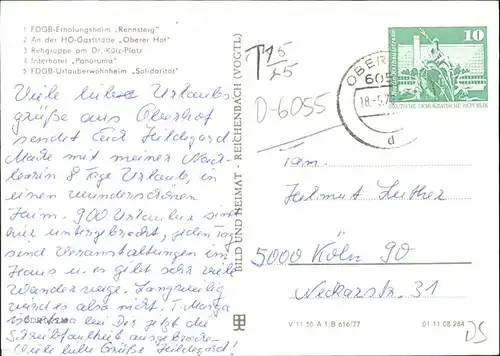 1 FDGB-Erholungsheim „Rennsteig"
2 An der HO-Gaststätte „Oberer Hof"
3 Rehgruppe am Dr.-Külz-Platz
4 Interhotel „Panorama"
5 FDGB-Urlauberwohnheim „Solidarität"
Viele liebe Urlaubs
grüße aus Oberhof
sendet Euch Hildegard
Mache mit meiner Nach
barin 8 Tage Urlaub, in
einen wunderschönen
Heim. 900 Urlauber sind
hier untergebracht, jeden Tag
sind Veranstaltungen im
Haus u. es gibt sehr viele
Wanderwege. Langweilig
wird es also nicht.
ist bei Dir jetzt die
Schreibfaulheit ausgebrochen
Viele liebe Grüße Hildegard!
BILD UND HEIMAT · REICHENBACH (VOGTL)
T 15
25
D-6055
OBER
605
18.-5.7
d
10
DEUTSCHE DEMOKRATISCHE REPUBLIK
Fam.
Helmut Luther
5000 Köln 90
Neckarstr. 31
V 11 50 A 1/B 616/77
01 11 08 284
DS